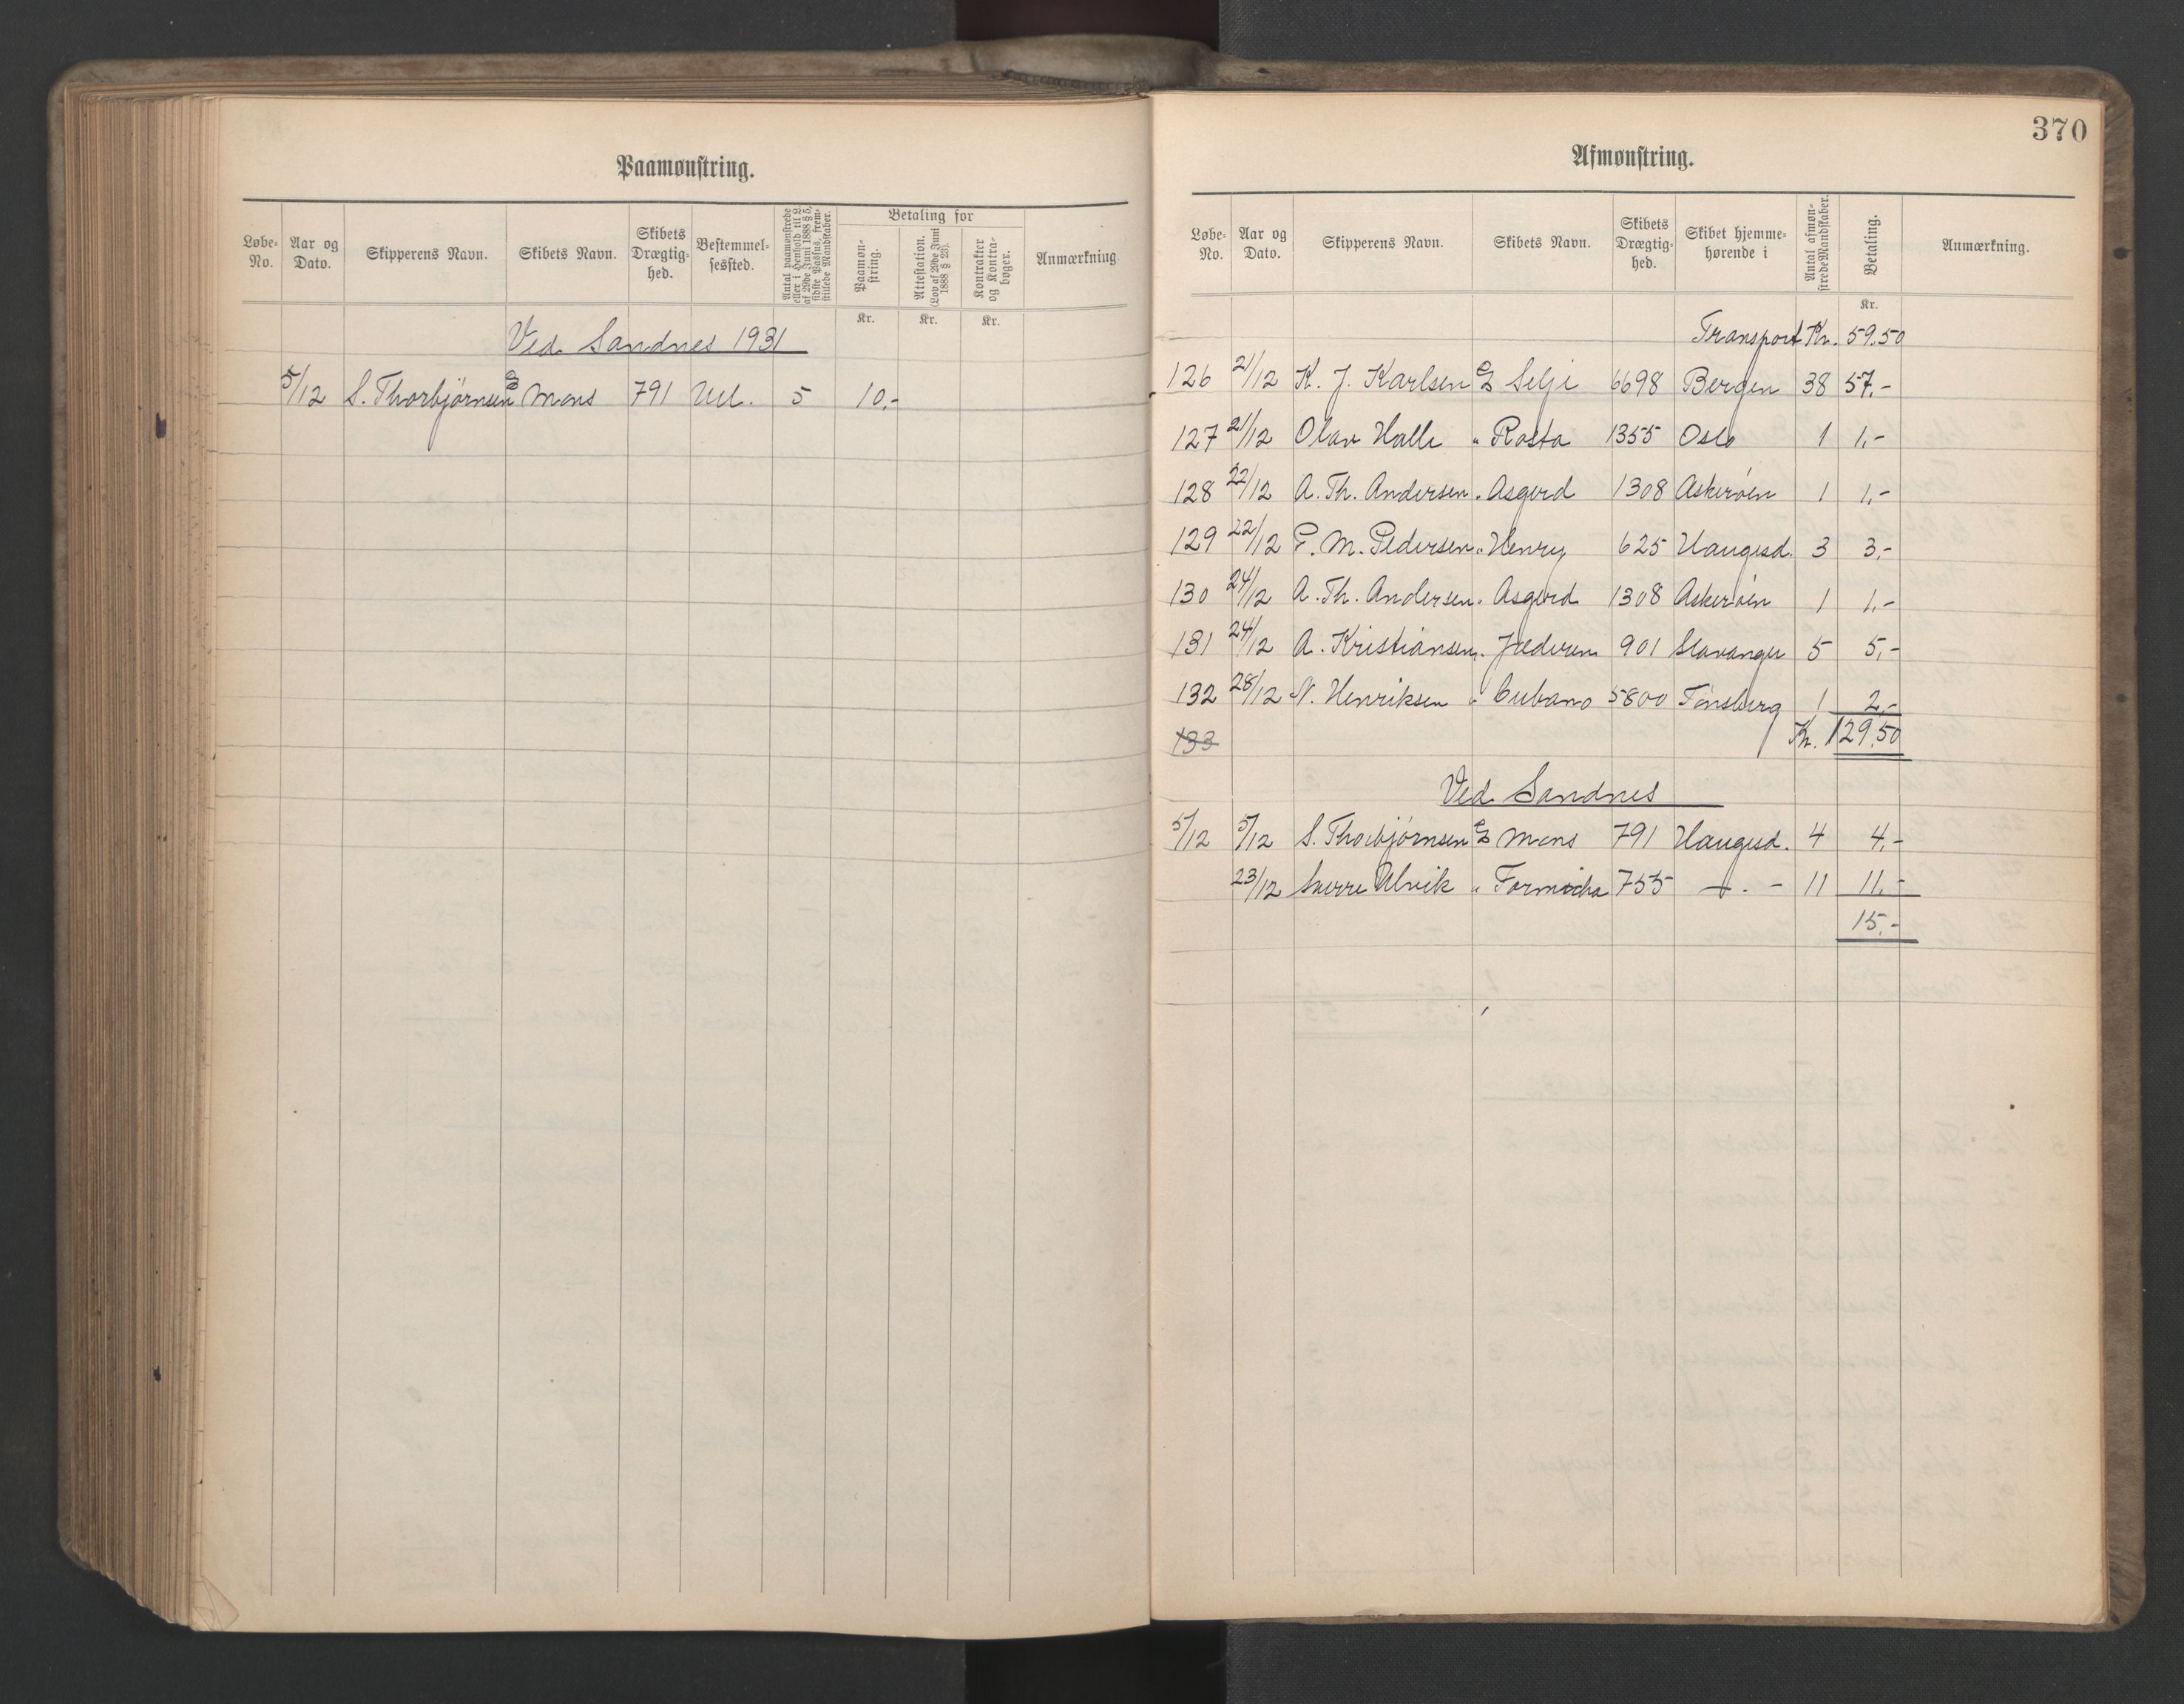 Paamønstring.
Løbe-No. Aar og Dato. Skipperens Navn. Skibets Navn. Skibets Drægtig-hed. Bestemmel-sessted. Antal paamønstrede eller i Henhold til L. af 29de Juni 1888 § 5, sidste Passus, frem-stillede Mandskaber. Betaling for Paamøn-string. Attestation. (Lov af 29de Juni 1888 § 23). Kontrakter og Kontra-bøger. Anmærkning.
Kr. Kr. Kr.
Ved Sandnes 1931
5/12 S. Thorbjørnsen Mons 791 Utl. 5 10,-
370
Afmønstring.
Løbe-No. Aar og Dato. Skipperens Navn. Skibets Navn. Skibets Drægtig-hed. Skibet hjemme-hørende i Antal afmøn-strede Mandskaber. Betaling. Anmærkning.
Kr.
Transport Kr. 59.50
126 21/12 K. J. Karlsen Selje 6698 Bergen 38 57,-
127 21/12 Olav Halle " Rosta 1355 Oslo 1 1,-
128 22/12 A. Th. Andersen " Asgerd 1308 Askerøen 1 1,-
129 22/12 P. M. Pedersen " Henry 625 Haugesd. 3 3,-
130 24/12 A. Th. Andersen " Asgerd 1308 Askerøen 1 1,-
131 24/12 A. Kristiansen " Jæderen 901 Stavanger 5 5,-
132 28/12 N. Henriksen " Cubano 5800 Tønsberg 1 2,-
133 Kr. 129.50
Ved Sandnes
5/12 5/12 S. Thorbjørnsen Mons 791 Haugesd. 4 4,-
23/12 Sverre Ulvik " Formica 755 - " - 11 11,-
15,-